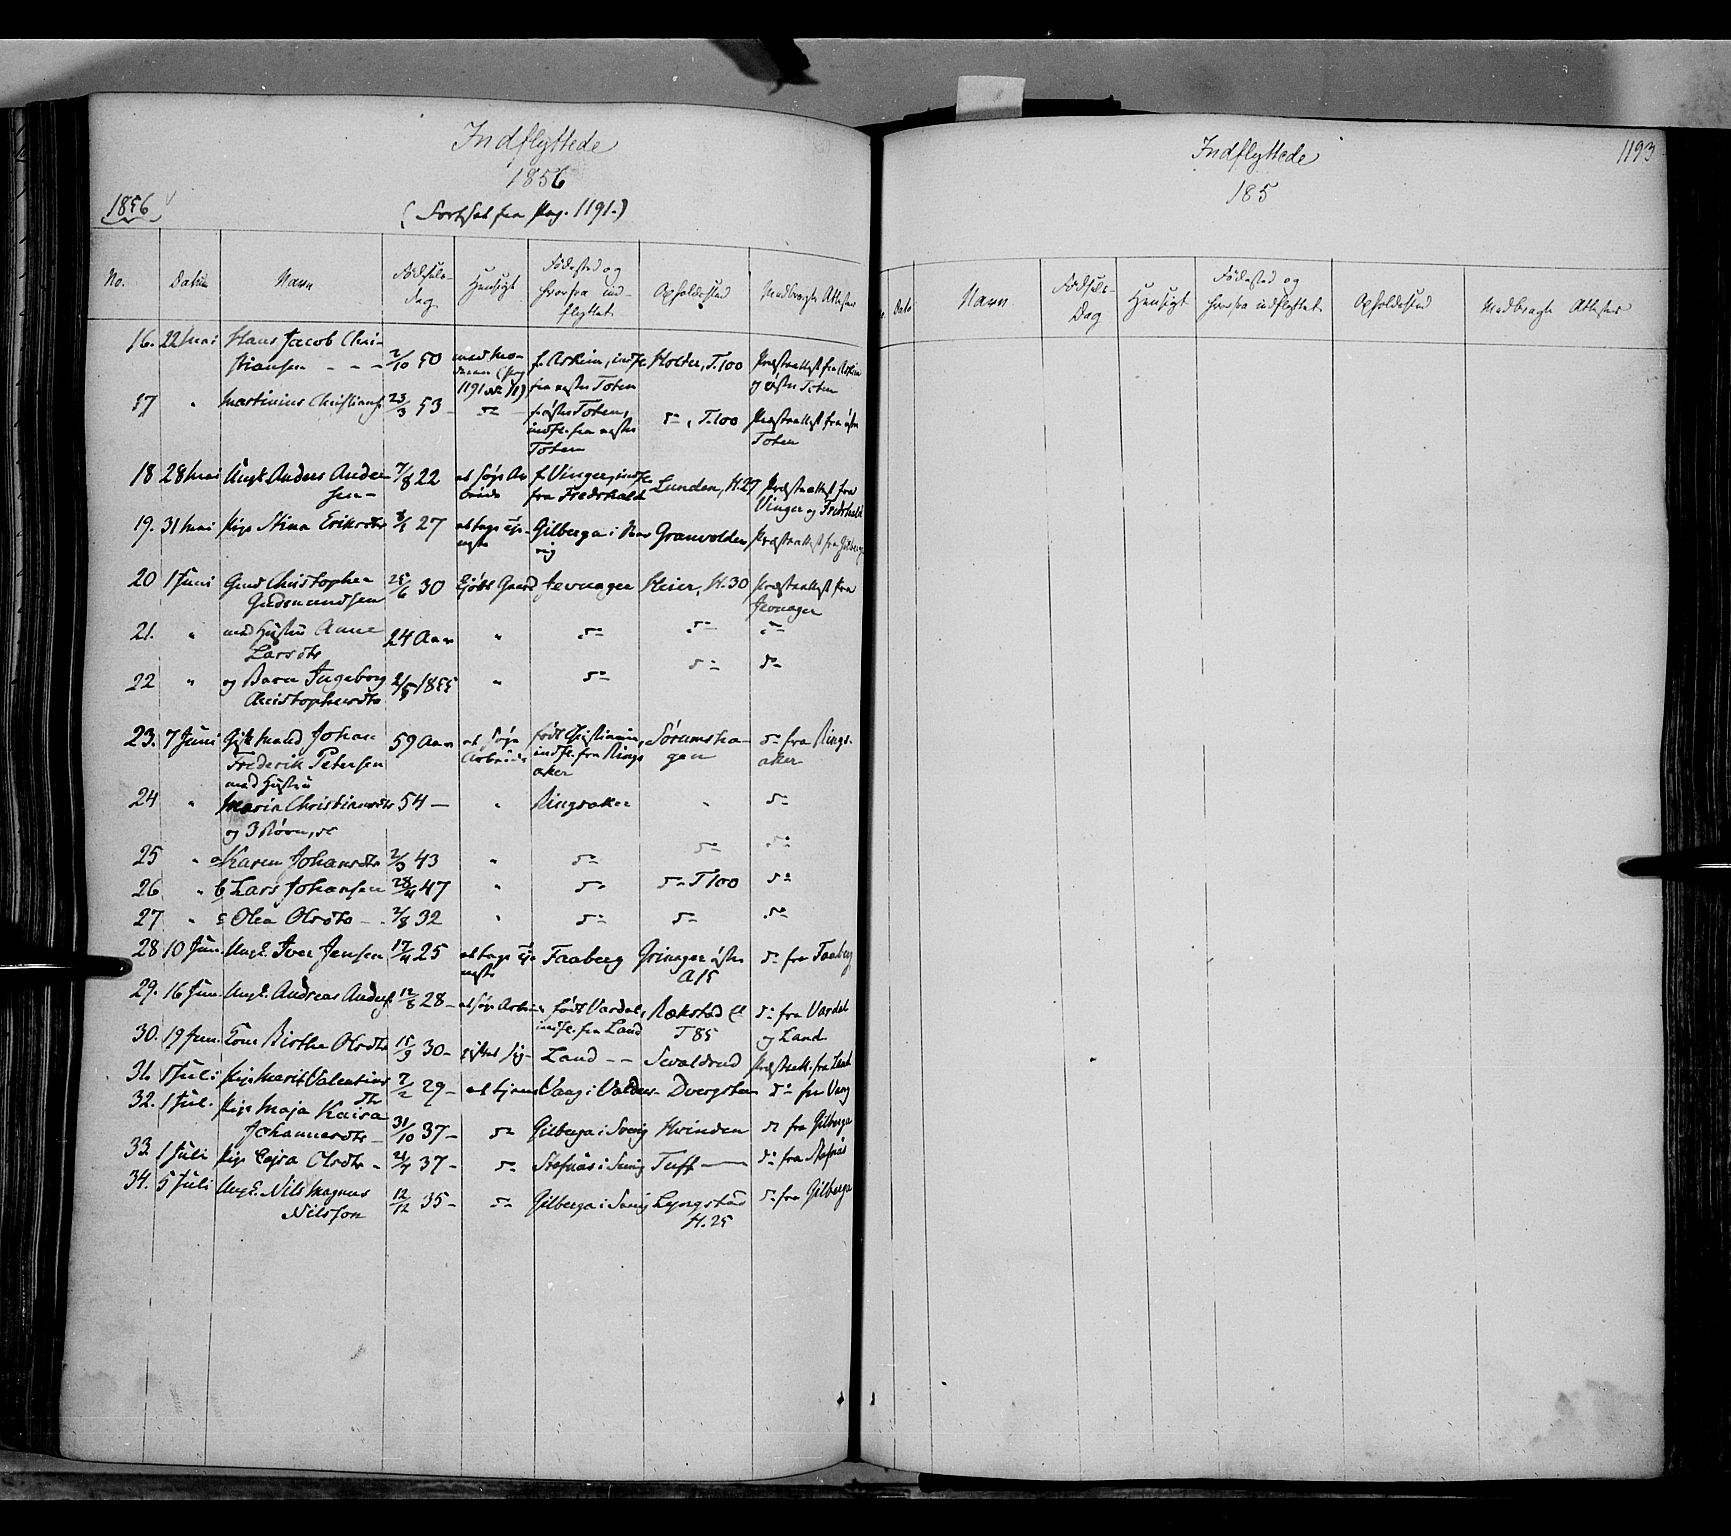 Indflyttede
1856
1856
(Fortsat fra Pag. 1191.)
No. Datum Navn Fødsels-Dag Hensigt Fødested og hvorfra indflyttet Opholdssted Medbragte Attester
16. 22 Mai Hans Jacob Christiansen - - - 2/10 50 med Moderen (Pag 1191 No 11) f. Askim, indfl. fra vestre Toten Holter, T.100 Præsteattest fra Askim og østre Toten
17 " Martinius Christians. 23/3 53 - do - f. østre Toten, indfl. fra vestre Toten do, T.100 Præsteattest fra østre Toten
18 28 Mai Ungk. Anders Andersen - 7/8 22 at søge Arbeide f. Vinger, indfl. fra Fredrhald Lunden, H.27 Præsteattest fra Vinger og Fredrhald
19. 31 Mai Pige Stina Eriksdtr 27 at tage Tjeneste Gilberga i Granvolden Præsteattest fra Gilberga
20 1 Juni Gmd Christopher Gudmundsen 25/6 30 kjøbt Gaard Jevnager Heier, H.30 Præsteattest fra Jevnager
21. " med Hustru Anne Larsdtr 24 Aar " do do do
22 " og Barn Ingeborg Christophersdtr 2/5 1855 " do do do
23. 7 Juni Gift Mand Johan Frederik Petersen 59 Aar at søge Arbeide født Christiania, indfl. fra Ringsaker Sørumshagen do fra Ringsaker
med Hustru
24 " Maria Christiansdtr 54 - " Ringsaker " do
og 3 Børn,
25 " a Karen Johansdtr 2/3 43 " do do do
26 " b Lars Johansen 28/4 47 " do do T100 do
27 " c Olea Olsdtr - 7/8 32 " do do do
28 10 Jun. Ungk. Iver Jensen 17/4 25 at tage Tjeneste Faaberg Grinager østre A15 do fra Faaberg
29. 16 Jun. Ungk. Andreas Anders. 12/8 28 - at søge Arbeide født Vardal, indfl. fra Land Rækstad T85 do fra Vardal og Land
30. 19 Jun. Kone Birthe Olsdtr 15/9 30 - giftet sig - Land - - Sevaldrud Præsteatt. fra Land
31. 1 Juli Pige Marit Valentinsdtr 7/2 29 - at tjene Vang i Valders - Dvergsten do fra Vang
32. 1 Jul. Pige Maja Kaisa Johannesdtr - 31/10 37 - do Gilberga i Sverig Hvinden do fra Gilberga
33. 1 Juli Pige Cajsa Olsdtr - 21/4 37 - do i Sverig Tuff - do fra
34. 5 Juli Ungk. Nils Magnus Nilsson 12/12 35 - do Gilberga i Sverig Lyngstad H.25 do fra Gilberga
Indflyttede
185
1193
Dato Navn Fødsels-Dag Hensigt Fødested og hvorfra indflyttet Opholdssted Medbragte Attester